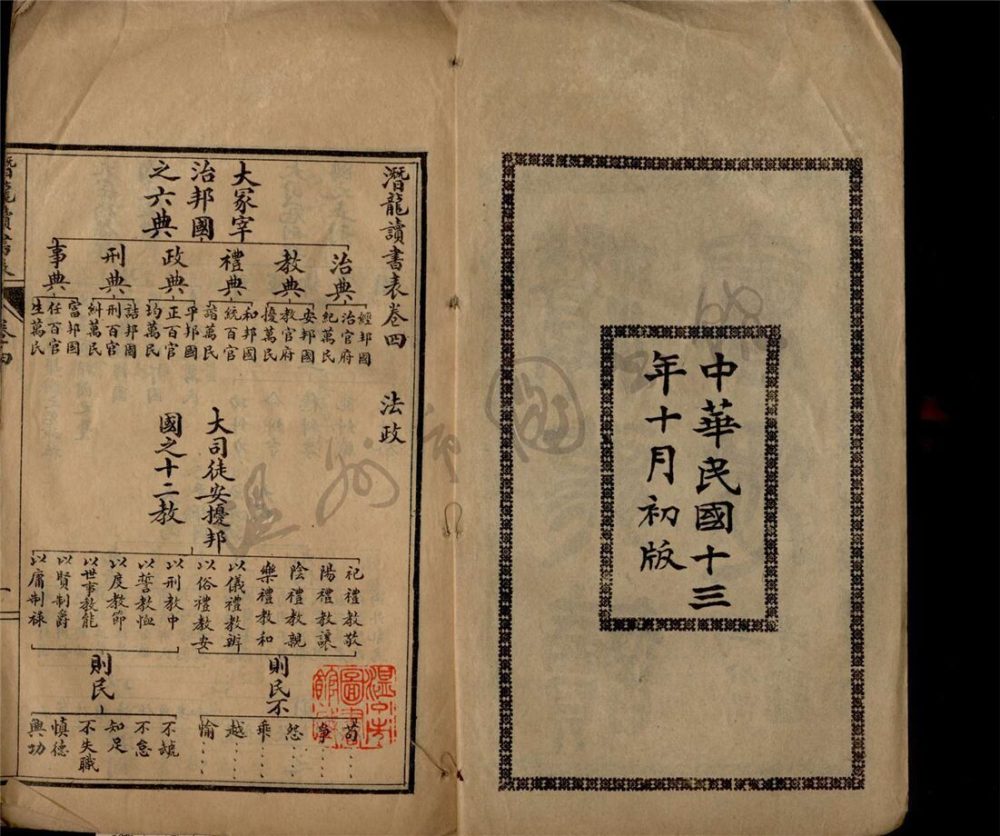 中華民國十三
年十月初版
潛龍讀書表卷四
法政
大冢宰
治邦國
之六典
治典
經邦國
治官府
紀萬民
教典
安邦國
教官府
擾萬民
禮典
和邦國
統百官
諧萬民
政典
平邦國
正百官
均萬民
刑典
詰邦國
刑百官
糾萬民
事典
富邦國
任百官
生萬民
大司徒安擾邦
國之十二教
祀禮教敬
陽禮教讓
陰禮教親
樂禮教和
以儀禮教辨
以俗禮教安
以刑教中
以誓教恤
以度教節
以世事教能
以賢制爵
以庸制祿
則民不
苟
爭
怨
乖
越
愉
則民
不虣
不怠
知足
不失職
慎德
興功
潛龍讀書表
卷四
一